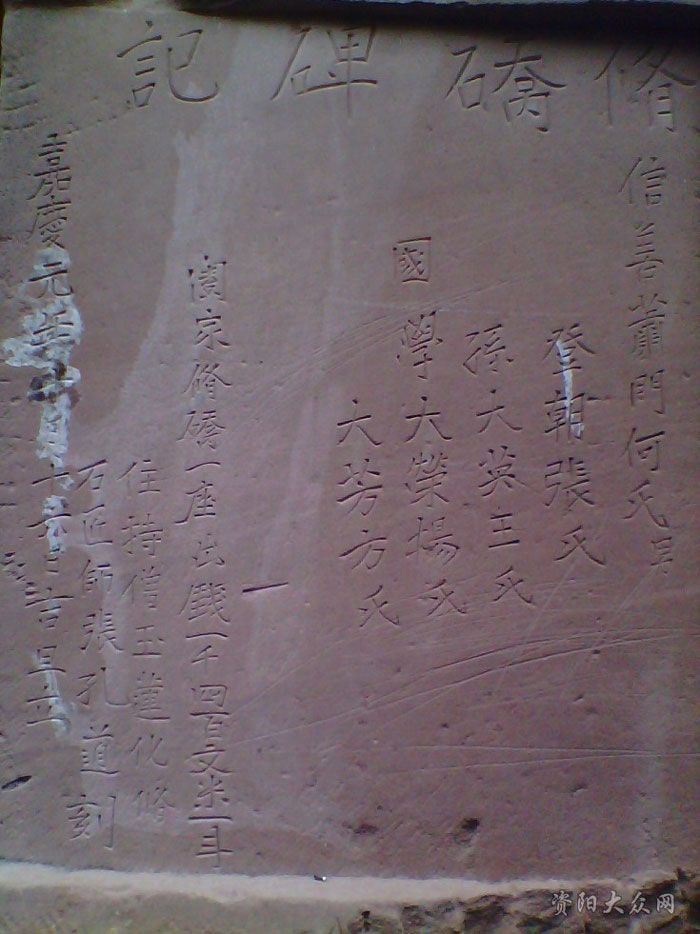 脩礄碑記
信善蕭門何氏
登朝張氏
孫大英王氏
國學大榮楊氏
大芳方氏
闔家脩礄一座出錢一千四百文米一斗
住持僧玉蓮化脩
石匠師張孔道刻
嘉慶元年十月十六日吉旦立
资阳大众网